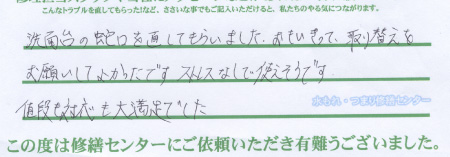 こんなトラブルを直してもらった!など、ささいな事でもご記入いただけると、私たちのやる気につながります。
洗面台の蛇口を直してもらいました。おもいきって、取り替えを
お願いしてよかったです ストレスなしで使えそうです。
値段も対応も大満足でした
水もれ・つまり修繕センター
この度は修繕センターにご依頼いただき有難うございました。